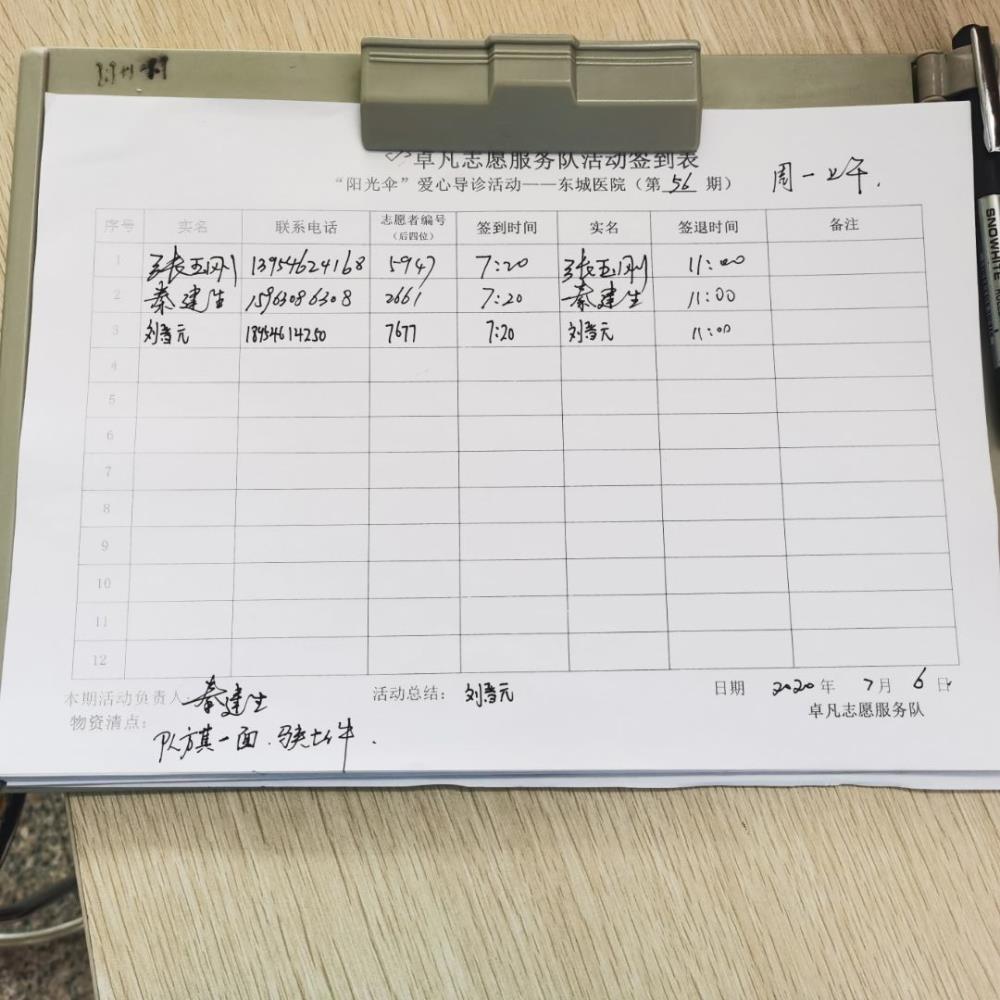 卓凡志愿服务队活动签到表
“阳光伞”爱心导诊活动——东城医院（第 56 期） 周一上午.
序号 实名 联系电话 志愿者编号（后四位） 签到时间 实名 签退时间 备注
1 张玉刚 13954624168 5947 7:20 张玉刚 11:00
2 秦建生 15963086308 2661 7:20 秦建生 11:00
3 刘春元 18954614250 7677 7:20 刘春元 11:00
4
5
6
7
8
9
10
11
12
本期活动负责人: 秦建生 活动总结: 刘春元 日期 2020 年 7 月 6 日
物资清点: 卓凡志愿服务队
队旗一面.马夹七件.
SNOWHITE